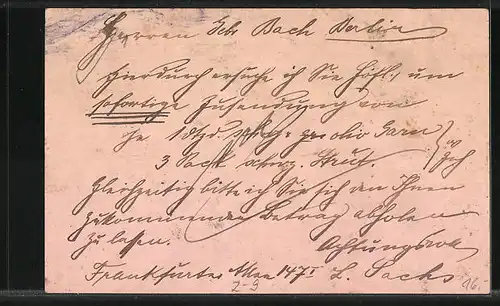 Herren Gebr Bach Berlin
Hierdurch ersuche ich Sie höfl., um
sofortige Zusendung von
je 1 Dtzd. oliv Garn
3 Pack
Gleichzeitig bitte ich Sie sich den Ihnen
zukommenden Betrag abholen
zu lassen.
Achtungsvoll
Frankfurter Allee 147 I L. Sachs
96.